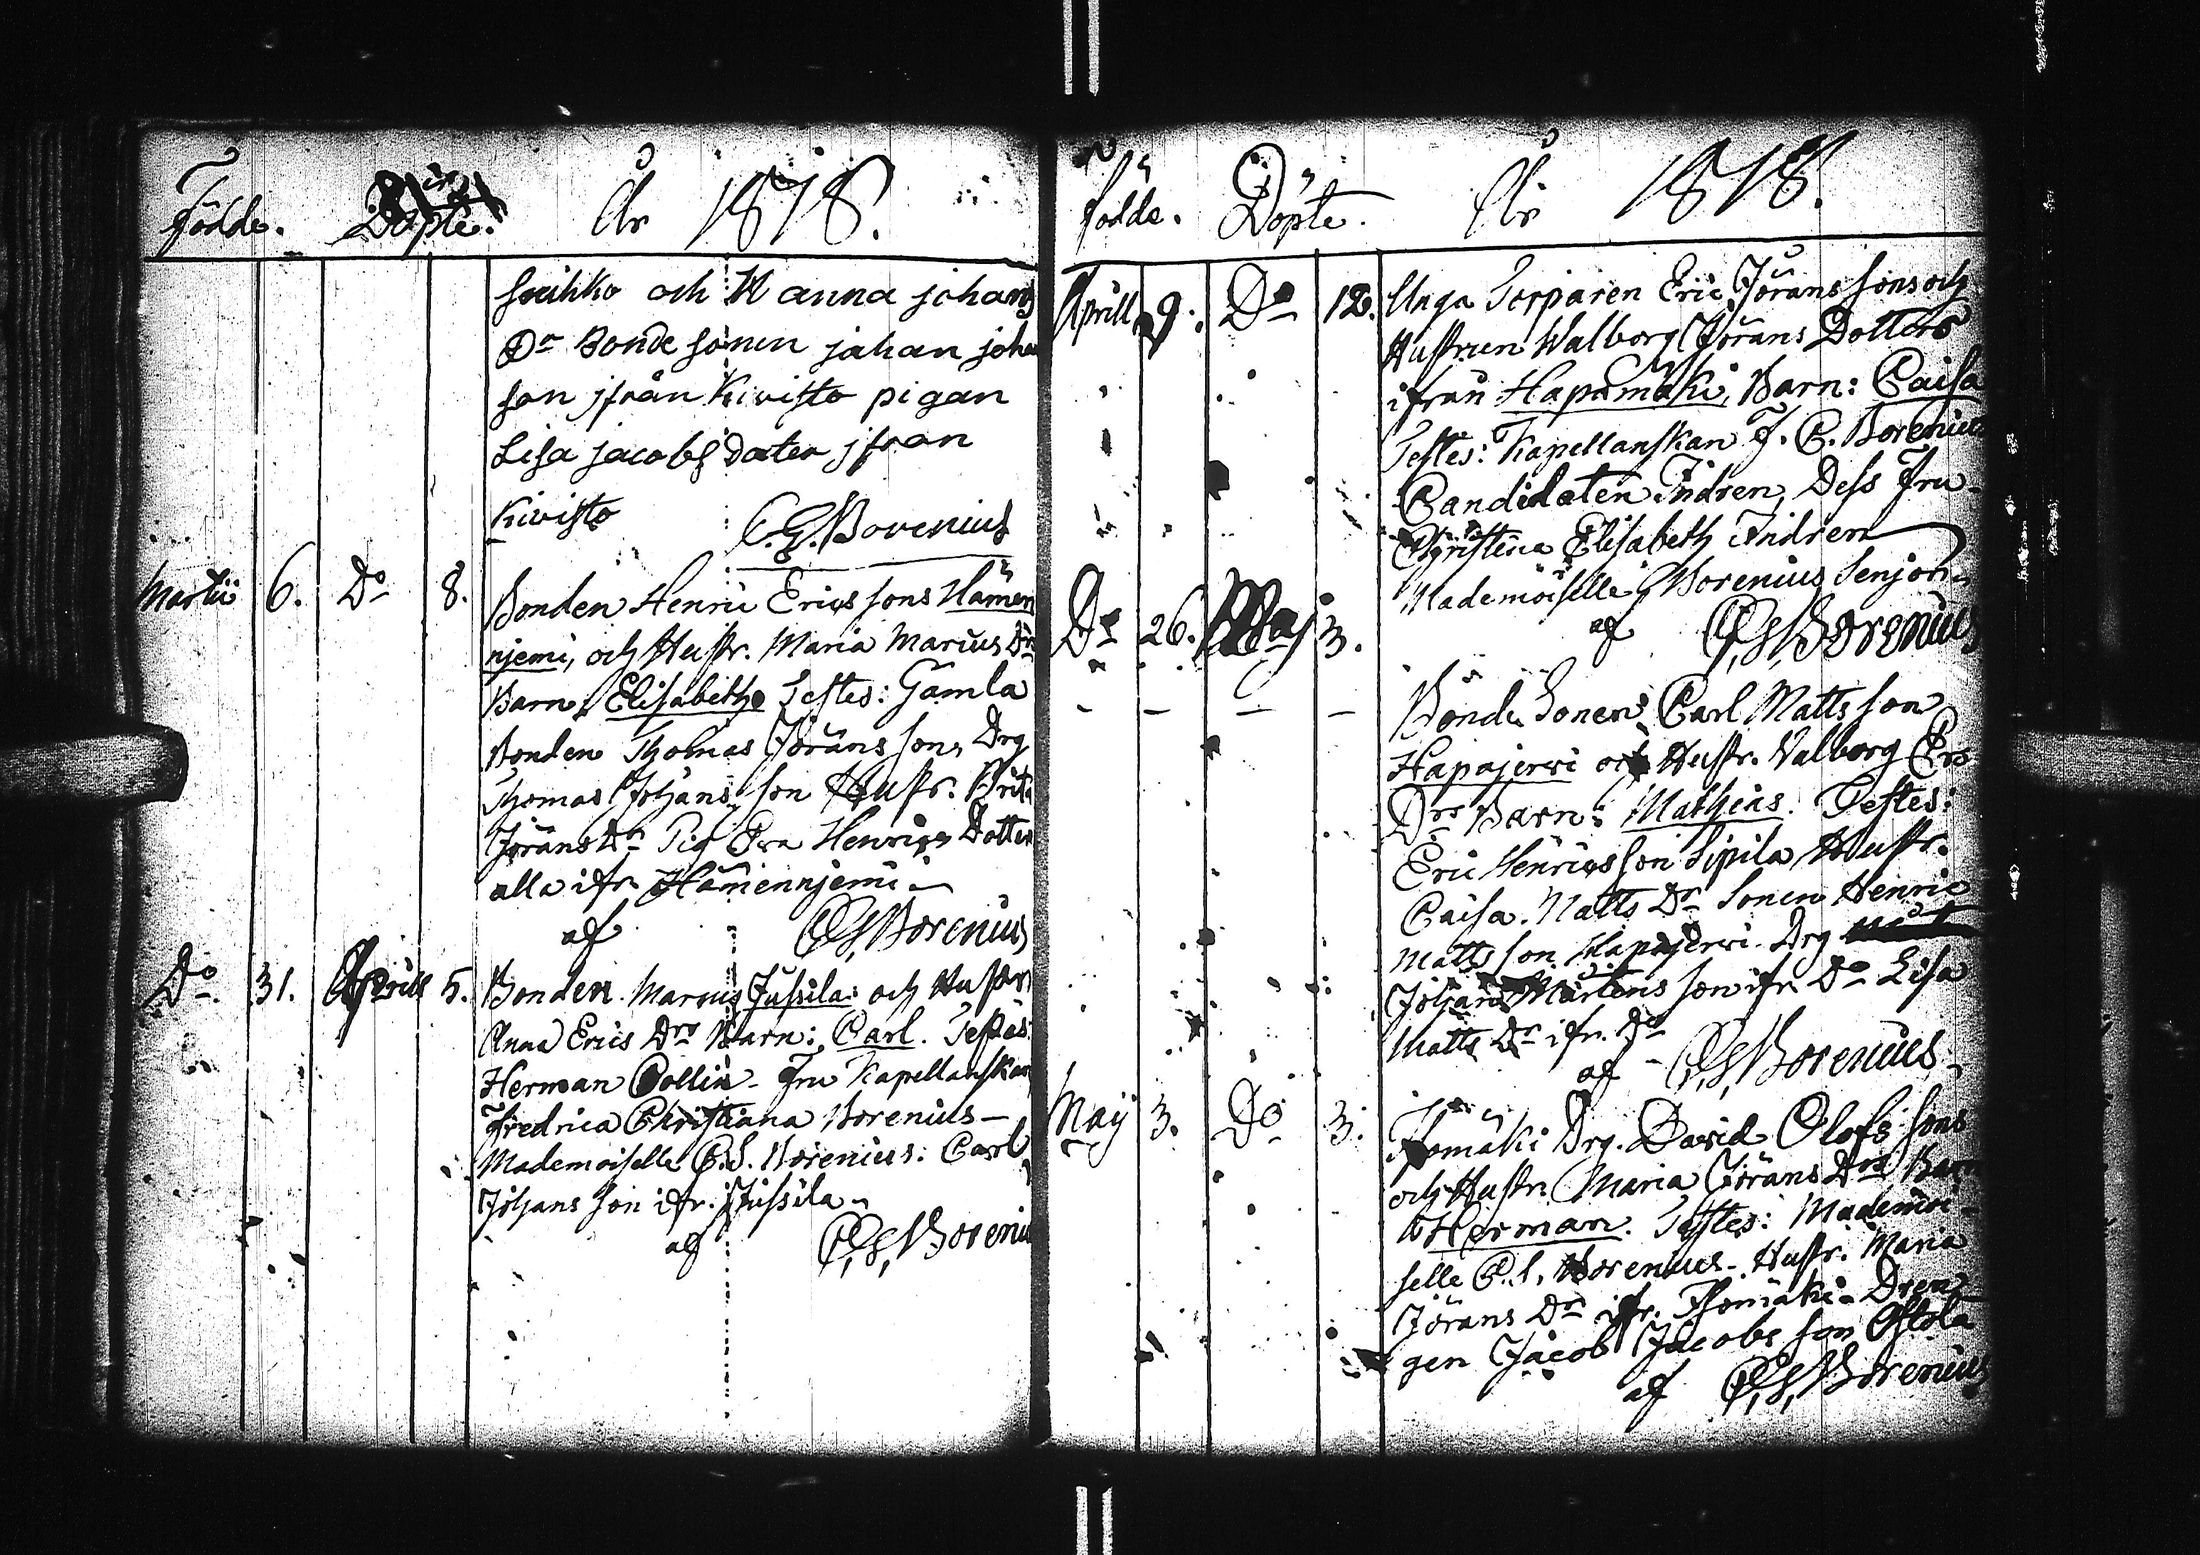 Födde. Döpte. År 1818.
Suihko och H anna johans
Dr Bonde sonen jahan joha
son jfrån Kivisto pigan
Lisa jacobs dater jfran
Kivisto C. G. Borenius
Martii 6. Do 8. Bonden Henric Erics sons Hämen
njemi, och Hustr. Maria Marcus Drs
Barn, Elisabeth. Testes: Gamla
Bonden Thomas Jörans son, Drg
Thomas Johans son Hustr. Brita
Jörans Dr Pig Eva Henrics Dotter
alla ifr. Hämennjemi
af C. G. Borenius
Do. 31. Aprill 5. Bonden Marcus Jussila: och Hustr.
Anna Erics Drs Barn: Carl. Testes:
Herman Collin - Fru Kapellanskan
Fredrica Christiana Borenius -
Mademoiselle C. S. Borenius: Carl
Johans son ifr. Jussila
af C. G. Boreniu
Födde. Döpte. År 1818.
Aprill 9. Do 12. Unga Torparen Eric Jörans sons och
Hustrun Walborg Jörans Dotters
ifrån Hapamäki, Barn: Caisa
Testes: Kapellanskan F. C. Borenius
Candidaten Indren, Dess Fru
Christina Elisabeth Indren
Mademoiselle Borenius Senjor
af C. G. Borenius
Do 26. May 3. Bonde Sonens Carl Matts son
Hapajerwi och Hustr. Valborg Ers
Drs Barn: Mathias. Testes:
Eric Henrics son Sipila Hustr.
Caisa Matts Dr Sonen Henric
Matts son Hapajerwi. Drg
Johan Mårtens son ifr. Do Lisa
Matts Dr ifr. Do
af C. G. Borenius
May 3. Do 3. Drg. David Olofs sons
och Hustr. Maria Jörans Drs Barn
Herman. Testes: Mademoi-
selle C. S. Borenius - Hustr. Maria
Jörans Dr ifr. - Dren
gen Jacob Jacobs son
af C. G. Borenius